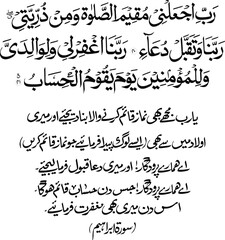 رَبِّ اجْعَلْنِي مُقِيمَ الصَّلٰوةِ وَمِنْ ذُرِّيَّتِي
رَبَّنَا وَتَقَبَّلْ دُعَآءِ رَبَّنَا اغْفِرْ لِي وَلِوَالِدَيَّ
وَلِلْمُؤْمِنِينَ يَوْمَ يَقُومُ الْحِسَابُ
یارب مجھے بھی نماز قائم کرنے والا بنا دیجئے اور میری
اولاد میں سے بھی (ایسے لوگ پیدا فرمائیے جو نماز قائم کریں)
اے ہمارے پروردگار! اور میری دعا قبول فرما لیجئے۔
اے ہمارے پروردگار! جس دن حساب قائم ہوگا،
اس دن میری بھی مغفرت فرمائیے۔
(سورۃ ابراہیم)